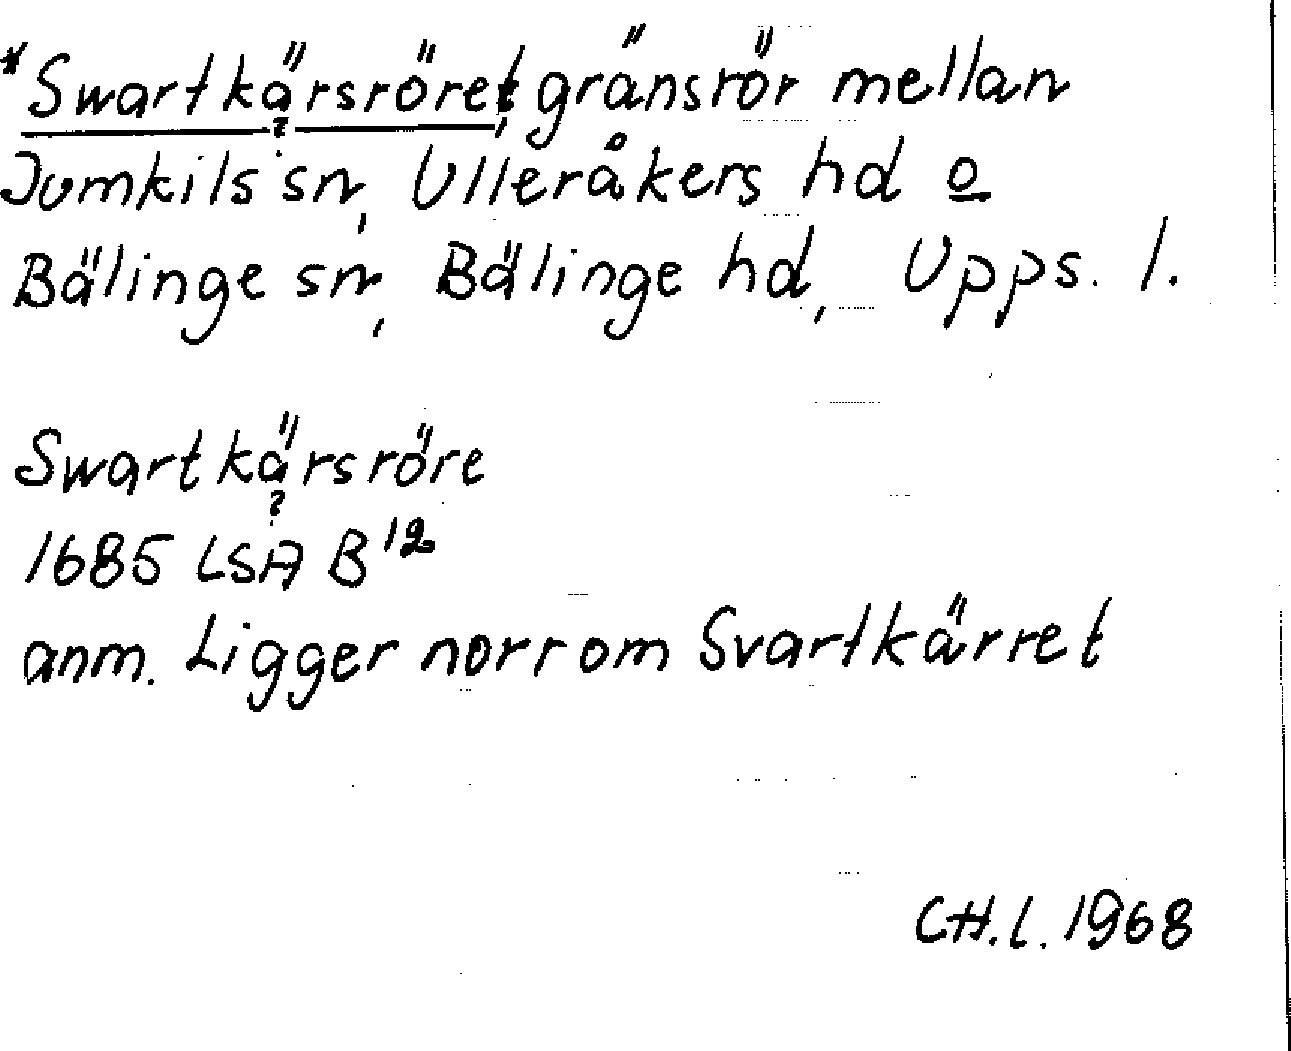 *Swartkärsröret, gränsrör mellan
?
Jumkils sn, Ulleråkers hd o
Bälinge sn, Bälinge hd, Upps. l.
Swartkärsröre
?
1685 LSA B 12
anm. Ligger norr om Svartkärret
CH.L. 1968